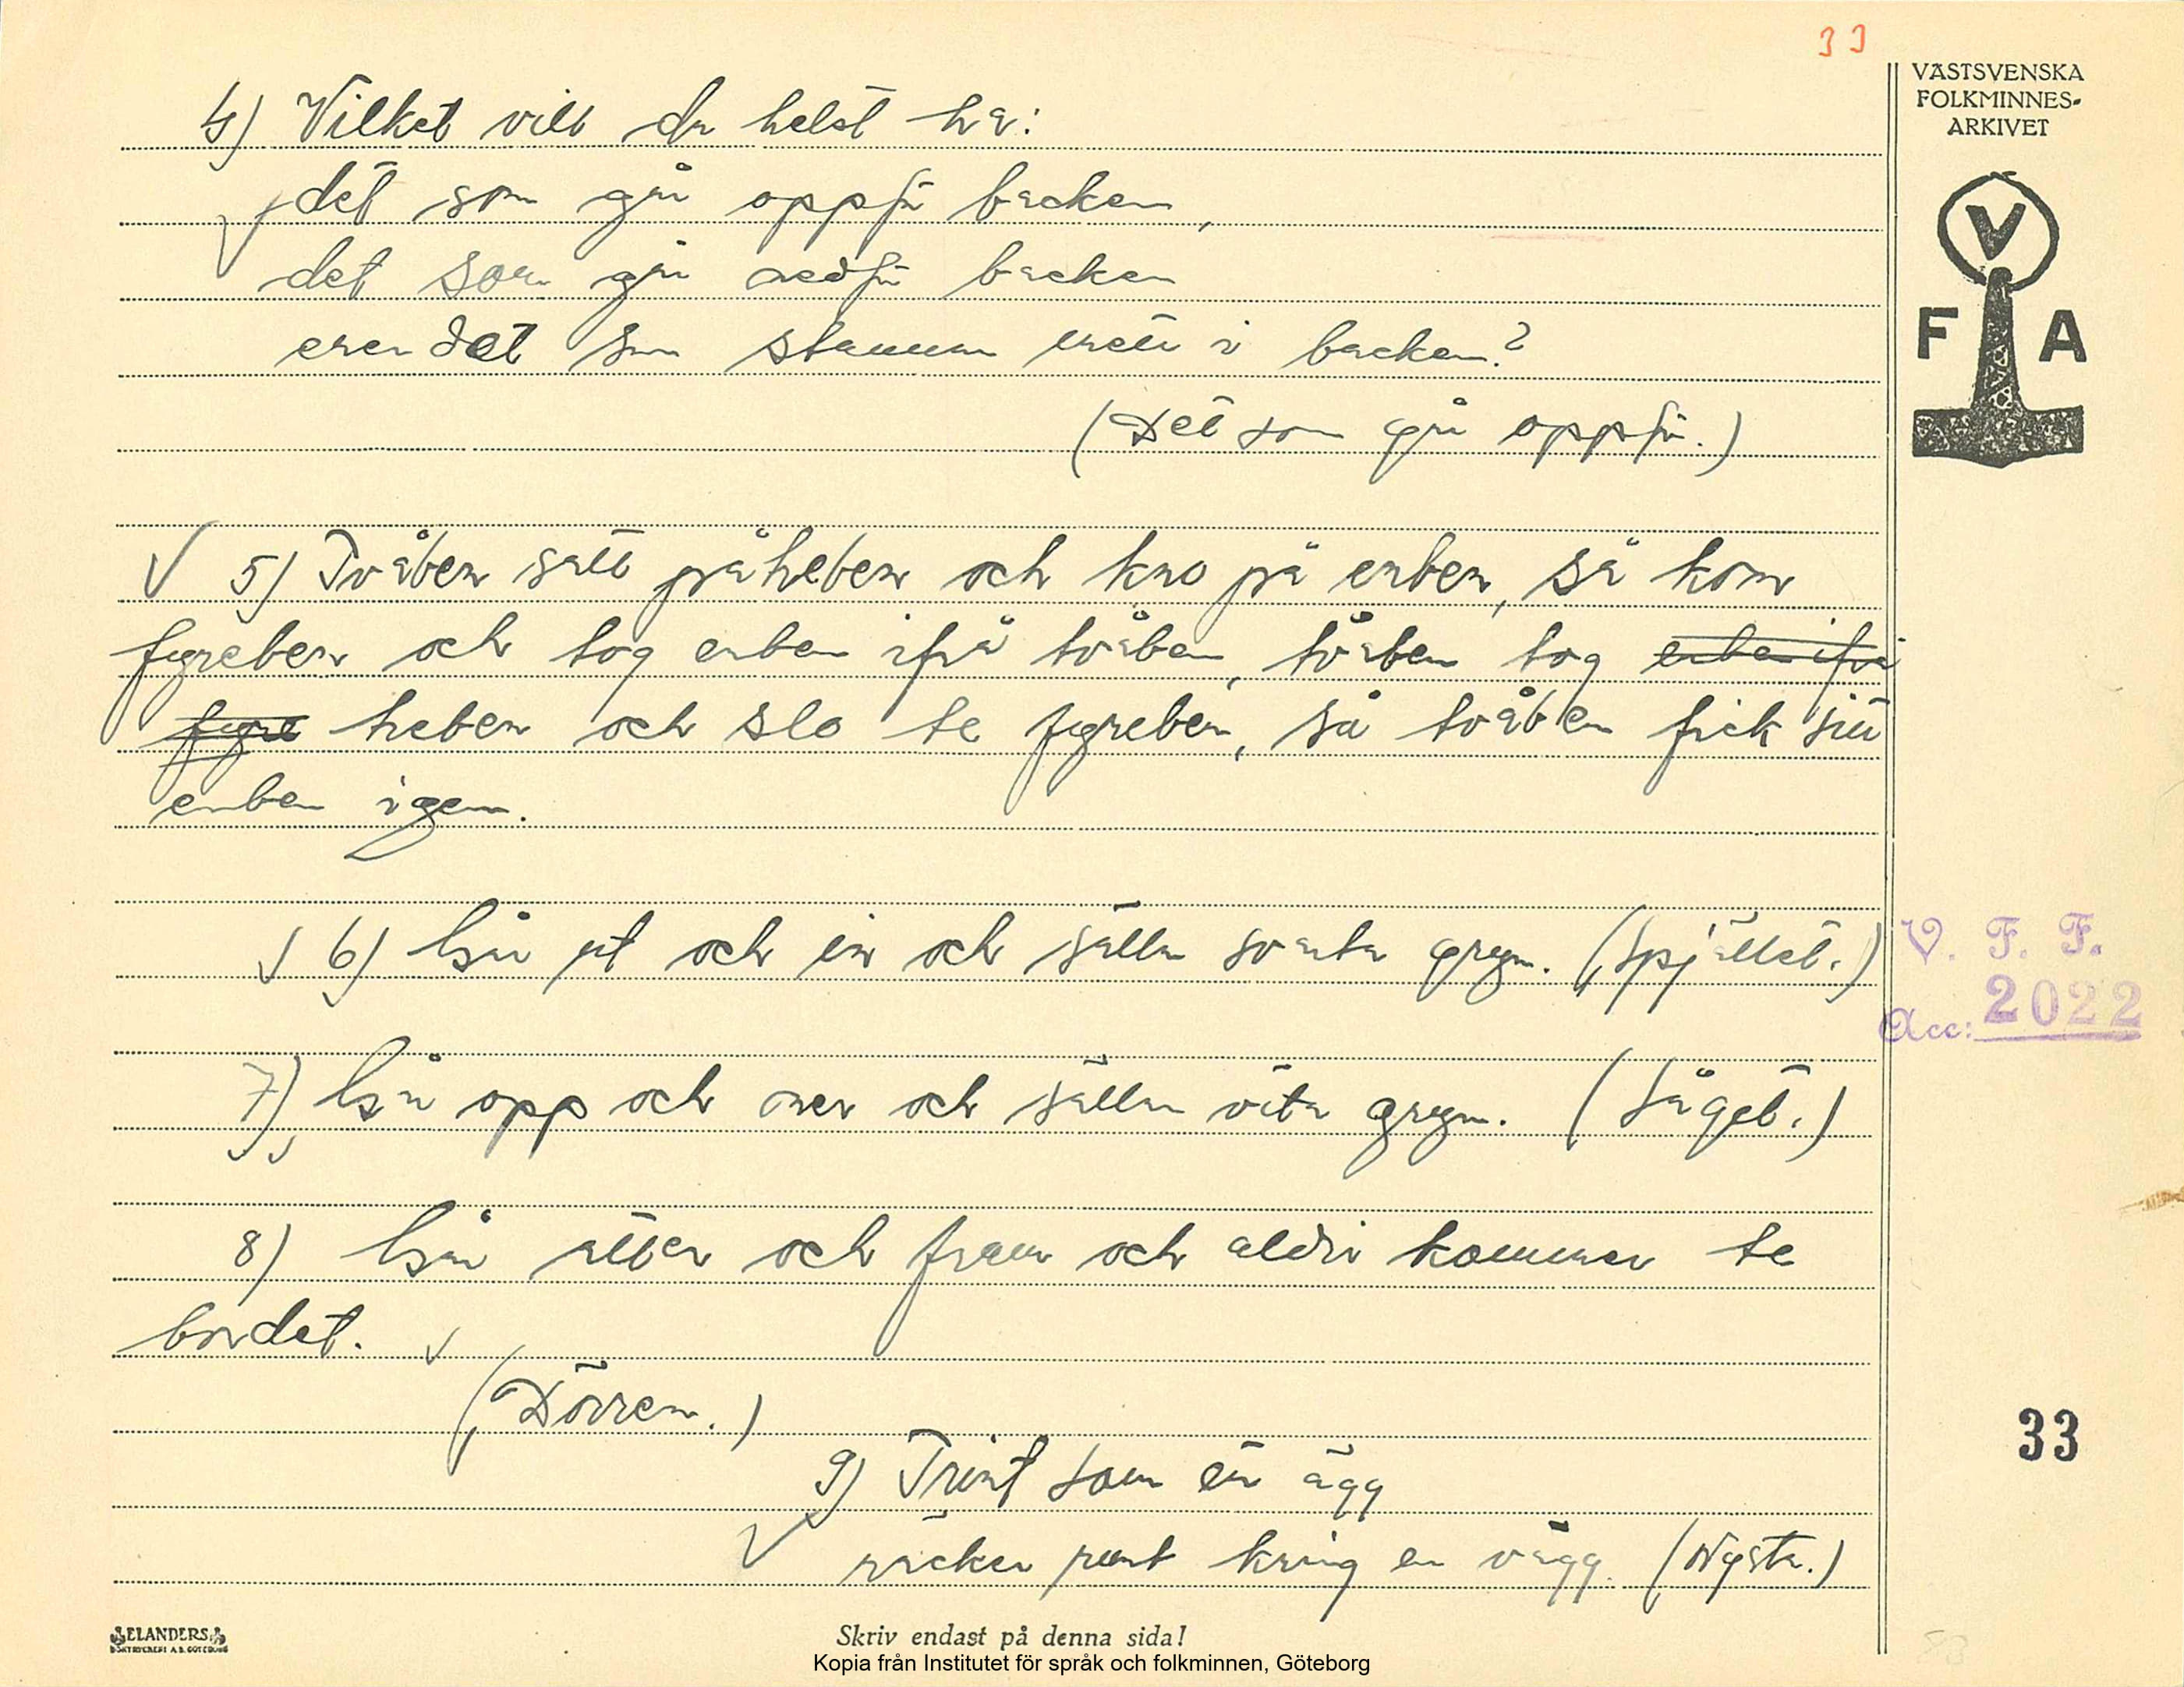 33
VÄSTSVENSKA
FOLKMINNES-
ARKIVET
V
F A
4) Vilket vill du helst ha:
det som går oppför backen,
det som går nedför backen
det som stannar i backen?
(Det som går oppför.)
5) Tvåben satt på treben och kno på enben, så kom
fyreben och tog enben ifrå tvåben, tvåben tog enben ifrå
fyre treben och slo te fyreben, så tvåben fick sitt
enben igen.
6) Går ut och in och sålla svarta gryn. (Spjället.)
7) Går opp och ner och sålla vita gryn. (Såget.)
8) Går åtter och fram och aldri kommer te
bordet.
(Dörren.)
9) Trint som en ägg
räcker runt kring en vägg. (Nysta.)
V. F. F.
Acc: 2022
33
ELANDERS
BOKTRYCKERI A.B. GÖTEBORG
Skriv endast på denna sida!
Kopia från Institutet för språk och folkminnen, Göteborg